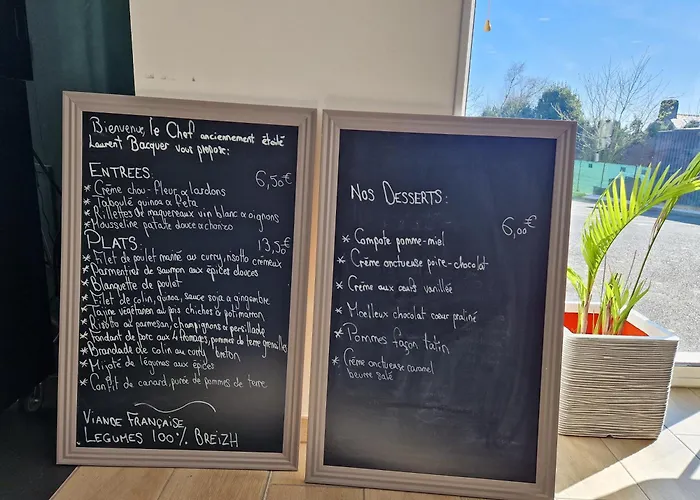 Bienvenue, le Chef anciennement étoilé
Laurent Bacquer vous propose:
ENTREES:
6,50€
* Crème chou-fleur & lardons
* Taboulé quinoa & feta
* Rillettes de maquereaux vin blanc & oignons
* Mousseline patate douce & chorizo
PLATS:
13,50€
* Filet de poulet mariné au curry, risotto crémeux
* Parmential de saumon aux épices douces
* Blanquette de poulet
* Filet de colin, quinoa, sauce soja & gingembre
* Tajine végétarien au pois chiches & potimarron
* Risotto au parmesan, champignons & persillade
* Fondant de porc aux 4 fromages, pommes de terre grenailles
* Brandade de colin au curry breton
* Mijoté de légumes aux épices
* Confit de canard, purée de pommes de terre
VIANDE FRANÇAISE
LEGUMES 100% BREIZH
NOS DESSERTS:
6,00€
* Compote pomme-miel
* Crème onctueuse poire-chocolat
* Crème aux œufs vanillée
* Moelleux chocolat cœur praliné
* Pommes façon tatin
* Crème onctueuse caramel
beurre salé